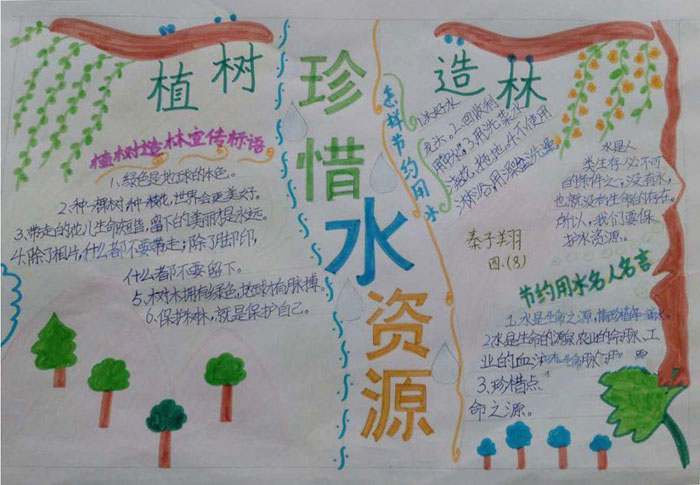 植树
造林
珍惜水资源
植树造林宣传标语
1、绿色是地球的本色。
2、种一棵树,种一枝花,世界会更美好。
3、带走的花儿生命短暂,留下的美丽才是永远。
4、除了相片,什么都不要带走;除了脚印,
什么都不要留下。
5、树木拥有绿色,地球才有脉搏。
6、保护树林,就是保护自己。
怎样节约用水
1、关好水
龙头。2、回收利
用水。3、用洗菜水
浇花、拖地。4、不使用
淋浴,用澡盆洗澡
秦子翔
四.(8)
水是人
类生存必不可
的条件之一,没有水,
也就没有生命的存在。
所以,我们要保
护水资源。
节约用水名人名言
1、水是生命之源,请珍惜每一滴水。
2、水是生命的源泉、农业的命脉、工
业的血液
3、珍惜点
命之源。